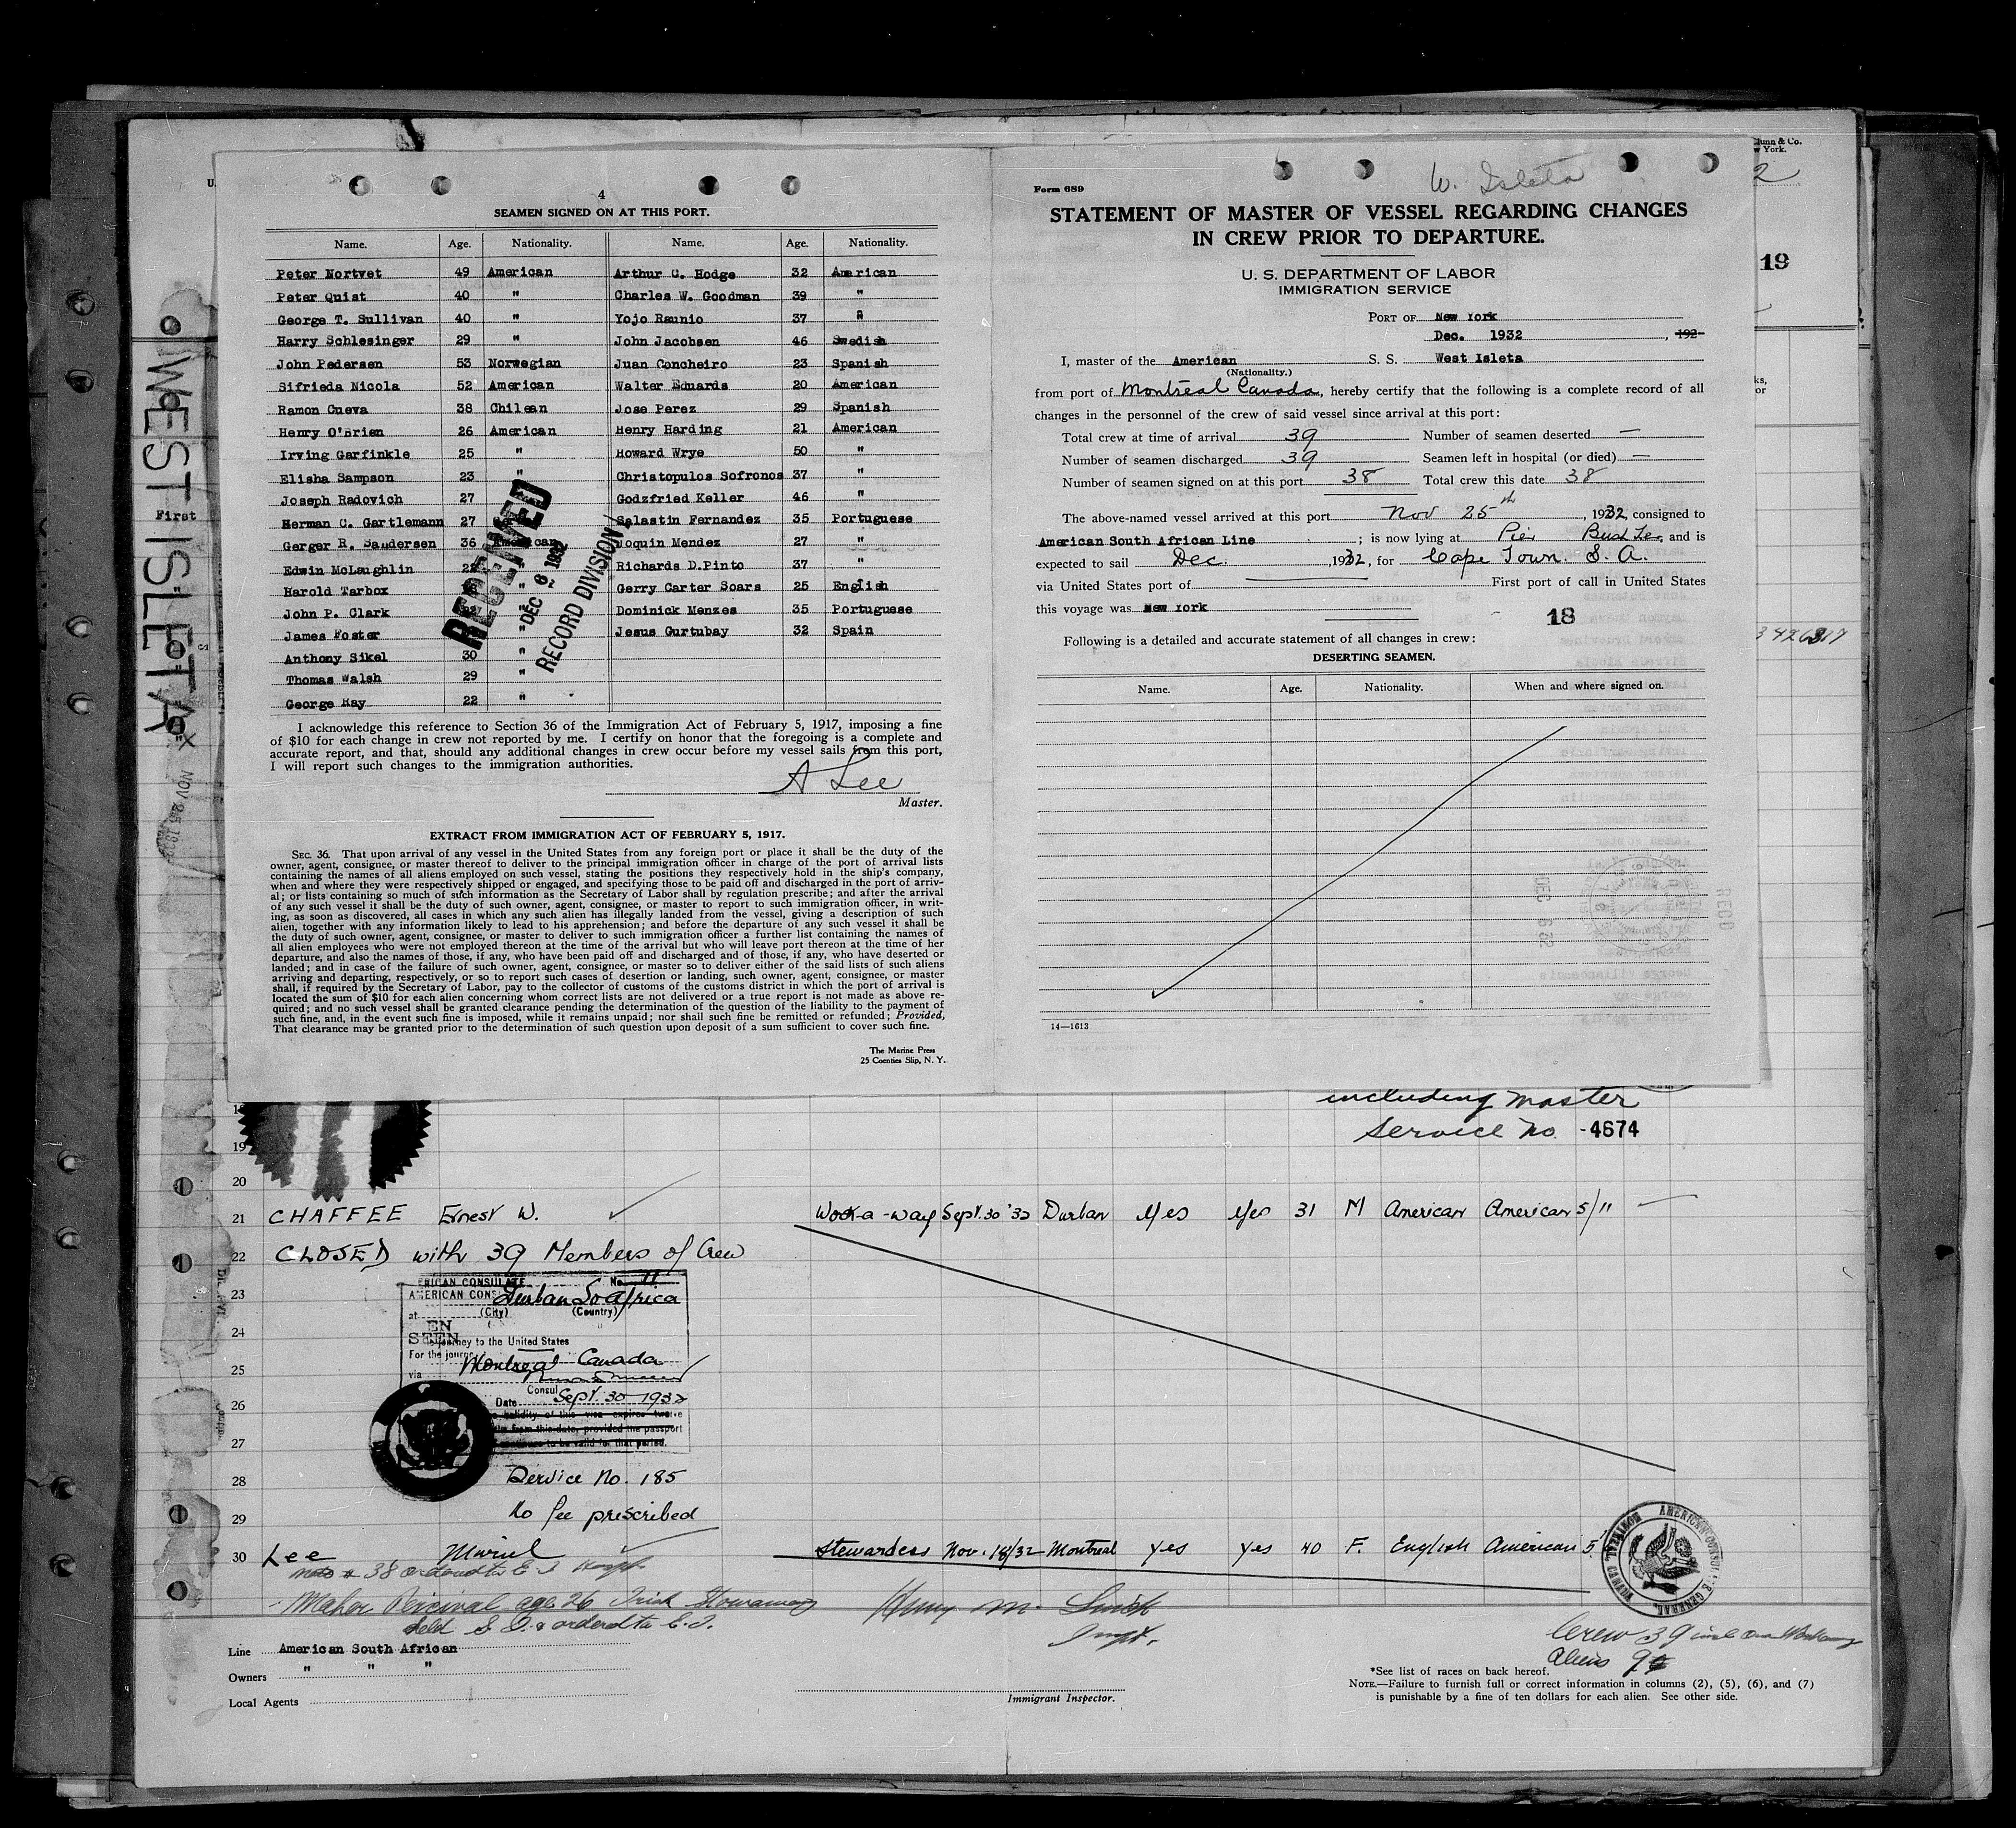 4
SEAMEN SIGNED ON AT THIS PORT.
Name. Age. Nationality. Name. Age. Nationality.
Peter Nortvet 49 American Arthur C. Hodge 32 American
Peter Quist 40 " Charles W. Goodman 39 "
George T. Sullivan 40 " Yojo Raunio 37 "
Harry Schlesinger 29 " John Jacobsen 46 Swedish
John Pedersen 53 Norwegian Juan Concheiro 23 Spanish
Sifrieda Nicola 52 American Walter Eduards 20 American
Ramon Cueva 38 Chilean Jose Perez 29 Spanish
Henry O'Brien 26 American Henry Harding 21 American
Irving Garfinkle 25 " Howard Wrye 50 "
Elisha Sampson 23 " Christopulos Sofronos 37 "
Joseph Radovich 27 Godzfried Keller 46 "
Herman C. Gartlemann 27 Salastin Fernandez 35 Portuguese
Gerger R. Saudersen 36 American Joquin Mendez 27 "
Edwin McLaughlin Richards D.Pinto 37 "
Harold Tarbox " Gerry Carter Soars 25 English
John P. Clark " Dominick Menzes 35 Portuguese
James Foster " Jesus Gurtubay 32 Spain
Anthony Sikel 30 "
Thomas Walsh 29 "
George Ray 22 "
RECEIVED
DEC 6 1932
RECORD DIVISION
I acknowledge this reference to Section 36 of the Immigration Act of February 5, 1917, imposing a fine
of $10 for each change in crew not reported by me. I certify on honor that the foregoing is a complete and
accurate report, and that, should any additional changes in crew occur before my vessel sails from this port,
I will report such changes to the immigration authorities.
A Lee
Master.
EXTRACT FROM IMMIGRATION ACT OF FEBRUARY 5, 1917.
SEC. 36. That upon arrival of any vessel in the United States from any foreign port or place it shall be the duty of the
owner, agent, consignee, or master thereof to deliver to the principal immigration officer in charge of the port of arrival lists
containing the names of all aliens employed on such vessel, stating the positions they respectively hold in the ship's company,
when and where they were respectively shipped or engaged, and specifying those to be paid off and discharged in the port of arriv-
al; or lists containing so much of such information as the Secretary of Labor shall by regulation prescribe; and after the arrival
of any such vessel it shall be the duty of such owner, agent, consignee, or master to report to such immigration officer, in writ-
ing, as soon as discovered, all cases in which any such alien has illegally landed from the vessel, giving a description of such
alien, together with any information likely to lead to his apprehension; and before the departure of any such vessel it shall be
the duty of such owner, agent, consignee, or master to deliver to such immigration officer a further list containing the names of
all alien employees who were not employed thereon at the time of the arrival but who will leave port thereon at the time of her
departure, and also the names of those, if any, who have been paid off and discharged and of those, if any, who have deserted or
landed; and in case of the failure of such owner, agent, consignee, or master so to deliver either of the said lists of such aliens
arriving and departing, respectively, or so to report such cases of desertion or landing, such owner, agent, consignee, or master
shall, if required by the Secretary of Labor, pay to the collector of customs of the customs district in which the port of arrival is
located the sum of $10 for each alien concerning whom correct lists are not delivered or a true report is not made as above re-
quired; and no such vessel shall be granted clearance pending the determination of the question of the liability to the payment of
such fine, and, in the event such fine is imposed, while it remains unpaid; nor shall such fine be remitted or refunded; Provided,
That clearance may be granted prior to the determination of such question upon deposit of a sum sufficient to cover such fine.
The Marine Press
25 Coenties Slip, N. Y.
W. Isleta
Form 689
STATEMENT OF MASTER OF VESSEL REGARDING CHANGES
IN CREW PRIOR TO DEPARTURE.
U. S. DEPARTMENT OF LABOR
IMMIGRATION SERVICE
PORT OF New York
Dec. 1932, 192-
I, master of the American S. S. West Isleta
(Nationality.)
from port of Montreal Canada, hereby certify that the following is a complete record of all
changes in the personnel of the crew of said vessel since arrival at this port:
Total crew at time of arrival 39 Number of seamen deserted —
Number of seamen discharged 39 Seamen left in hospital (or died) —
Number of seamen signed on at this port 38 Total crew this date 38
The above-named vessel arrived at this port Nov 25th, 1932, consigned to
American South African Line; is now lying at Pier Bush Ter, and is
expected to sail Dec. 1932, for Cape Town. S. A.
via United States port of First port of call in United States
this voyage was New York
18
Following is a detailed and accurate statement of all changes in crew:
DESERTING SEAMEN.
Name. Age. Nationality. When and where signed on.
DEC 6 32
REC'D
14—1613
WEST ISLETA
First
NOV 25 19
19
including master
Service No. -4674
19
20
21 CHAFFEE Ernest W. Work-a-way Sept. 30 '32 Durban Yes Yes 31 M American American 5/11 —
22 CLOSED with 39 Members of Crew
23
24
25
26
27
28
29
AMERICAN CONSULATE No. 11
at Durban So Africa
(City) (Country)
For the journey to the United States
via Montreal Canada
Consul
Date Sept. 30 1932
validity of this visa expires twelve
from this date, provided the passport
to be valid for that period.
Service No. 185
No fee prescribed
30 Lee Muriel Stewardess Nov. 18/32 Montreal Yes Yes 40 F. English American 5'
Maher Percival age 26 Irish Stowaway
held S. I. & ordered to E. I.
Henry M. Smith
Inspt.
AMERICAN CONSULATE GENERAL MONTREAL QUEBEC CANADA
Line American South African
Owners " " "
Local Agents
Immigrant Inspector.
Crew 39 incl one Workaway
Aliens 9
*See list of races on back hereof.
NOTE.—Failure to furnish full or correct information in columns (2), (5), (6), and (7)
is punishable by a fine of ten dollars for each alien. See other side.